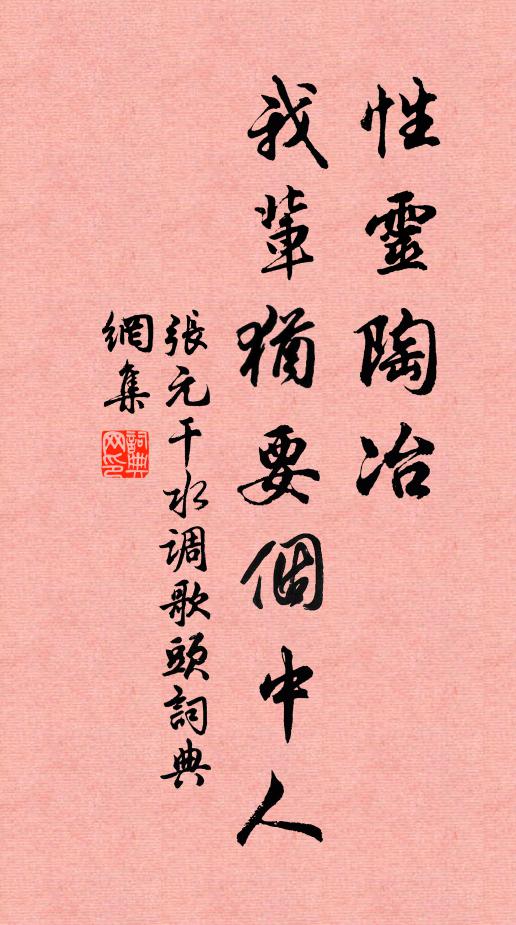 性靈陶冶
我輩猶要個中人
張元干水调歌頭詞典
網集
詞典网印